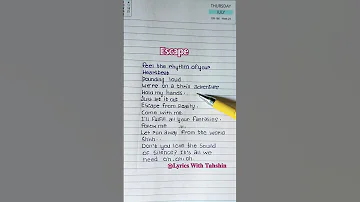 THURSDAY
JULY
Escape
Feel the rhythm of your
Heartbeat
Pounding loud
We're on a thrill adventure
Hold my hands
Just let it out
Escape from Reality
Come with me
I'll fulfill all your fantasies
Follow me
Let run away from the world
Shhh
Don't you love the sound
of silence? It's all we
need oh..oh oh
@Lyrics With Tahshin